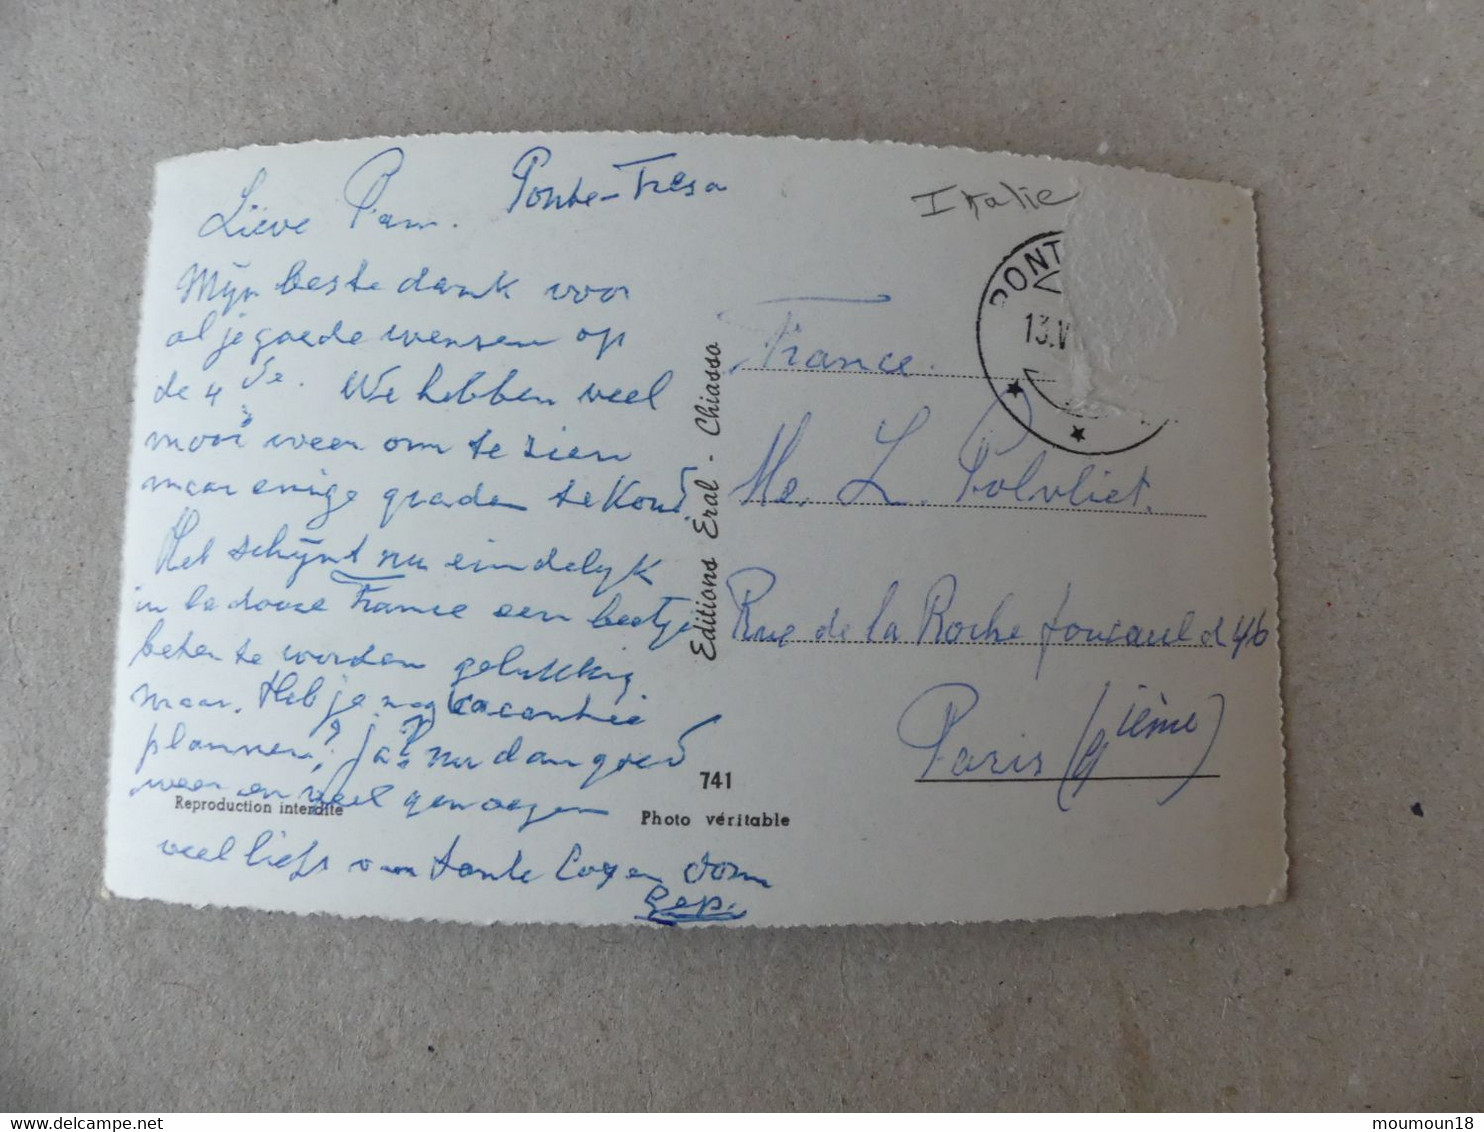 Lieve Pam. Ponte-Tresa
Mijn beste dank voor
al je goede wensen op
de 4 de. We hebben veel
mooi weer om te zien
maar enige graden te Koud
Het schijnt nu eindelijk
in la douce France een beetje
beter te worden gelukkig
maar. Heb je nog vacantie
plannen? ja? nu dan goed
weer en veel genoegen
veel liefs van tante Coy en
Gep.
Italie
PONT
13.V
France.
Me. L. Polvliet.
Rue de la Rochefoucauld 46
Paris (9ième)
Editions Eral - Chiasso
741
Reproduction interdite
Photo véritable
moumoun18